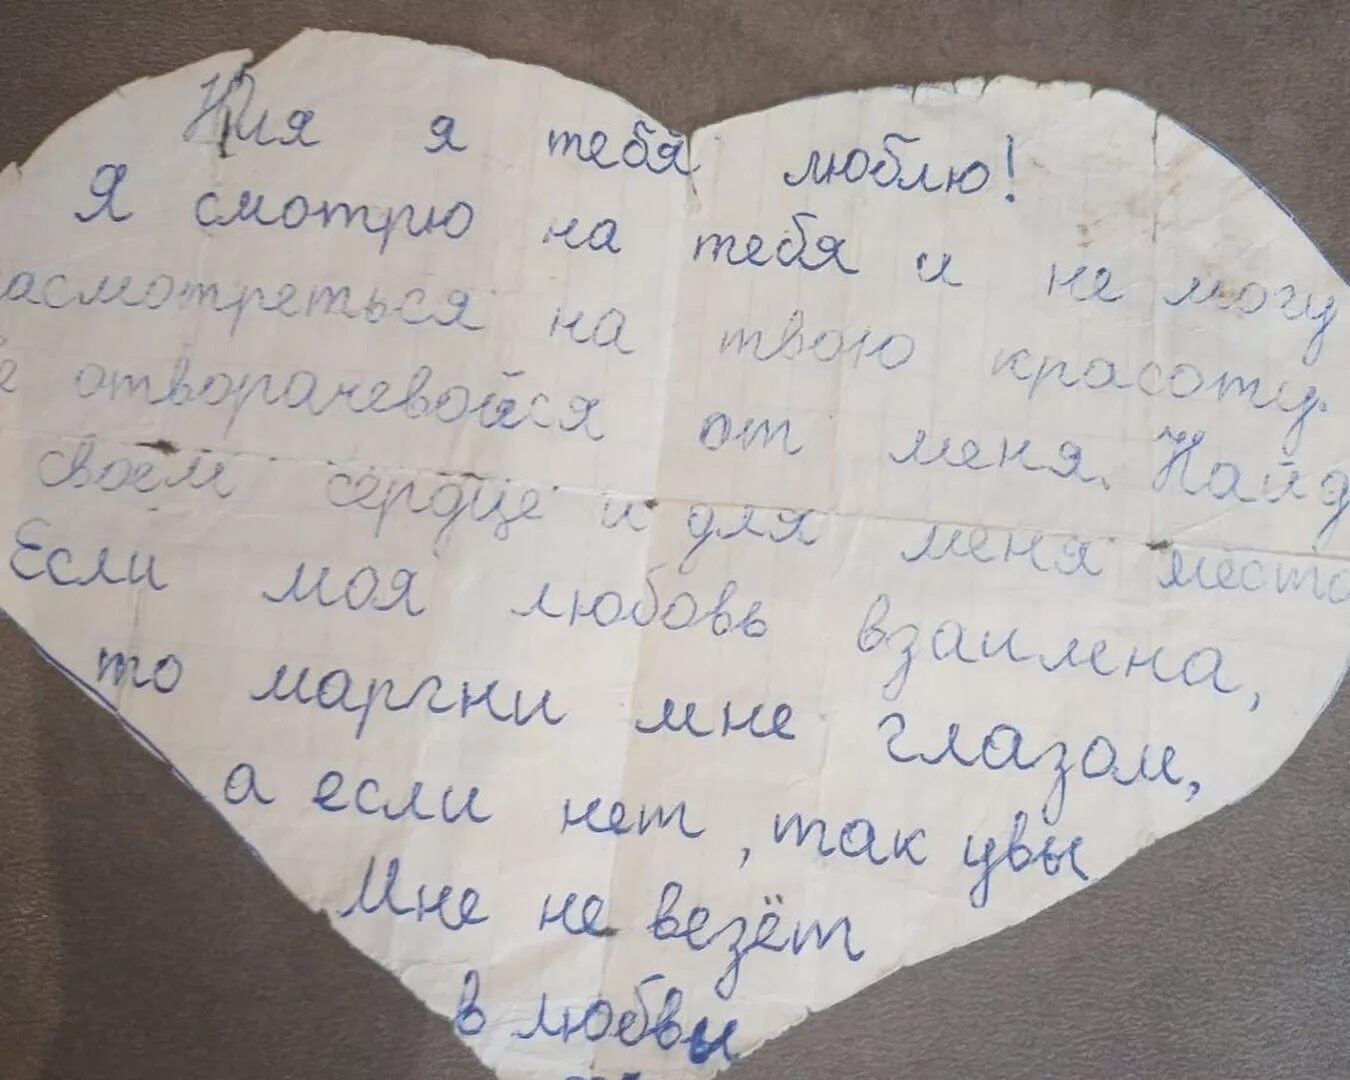 я тебя люблю!
Я смотрю на тебя и не могу
асмотреться на твою красоту.
е отворачевойся от меня. Найд
своём сердце и для меня место
Если моя любовь взаимена,
то маргни мне глазом,
а если нет, так увы
Мне не везёт
в любвы